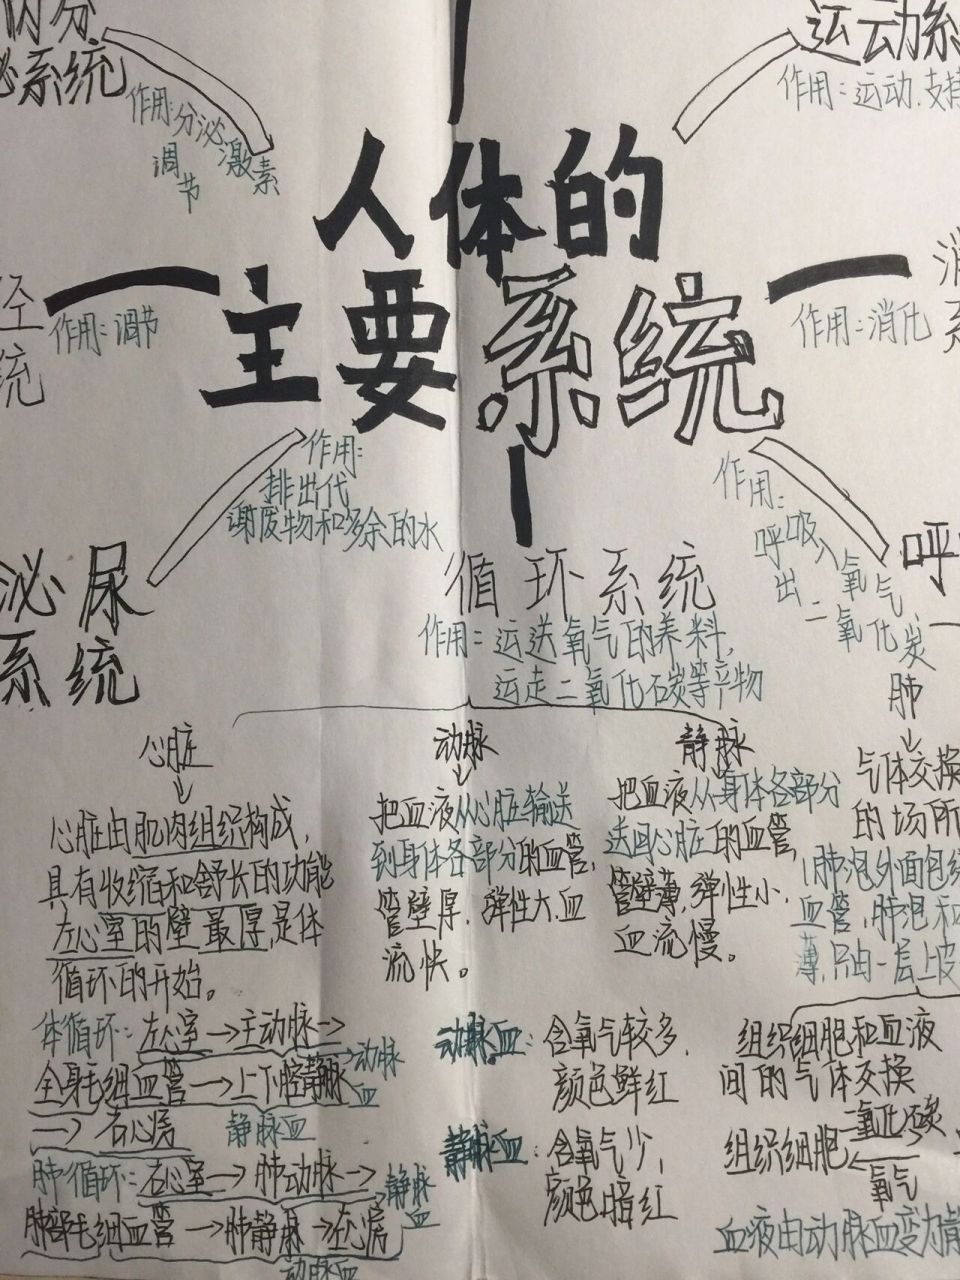 内分
泌系统
作用:分泌激素
调节
运动系
作用:运动.支持
人体的
主要系统
经
统
作用:调节
消
系
作用:消化
作用:
排出代
谢废物和多余的水
泌尿
系统
循环系统
作用:运送氧气的养料,
运走二氧化石炭等产物
作用:
呼吸入氧气,
出二氧化炭
呼
心脏
心脏由肌肉组织构成,
具有收缩和舒长的功能
左心室的壁最厚,是体
循环的开始。
动脉
把血液从心脏输送
到身体各部分的血管,
管壁厚,弹性大,血
流快。
静脉
把血液从身体各部分
送回心脏的血管,
管壁薄,弹性小,
血流慢。
肺
气体交换
的场所
肺泡外面包绕
血管,肺泡和
薄,只由一层上皮
体循环:左心室→主动脉→
全身毛细血管→上下腔静脉
→右心房
动脉血
静脉血
肺循环:右心室→肺动脉→
肺部毛细血管→肺静脉→左心房
静脉血
动脉血
动脉血:含氧气较多,
颜色鲜红
静脉血:含氧气少,
颜色暗红
组织细胞和血液
间的气体交换
组织细胞
二氧化碳
氧气
血液由动脉血变为静